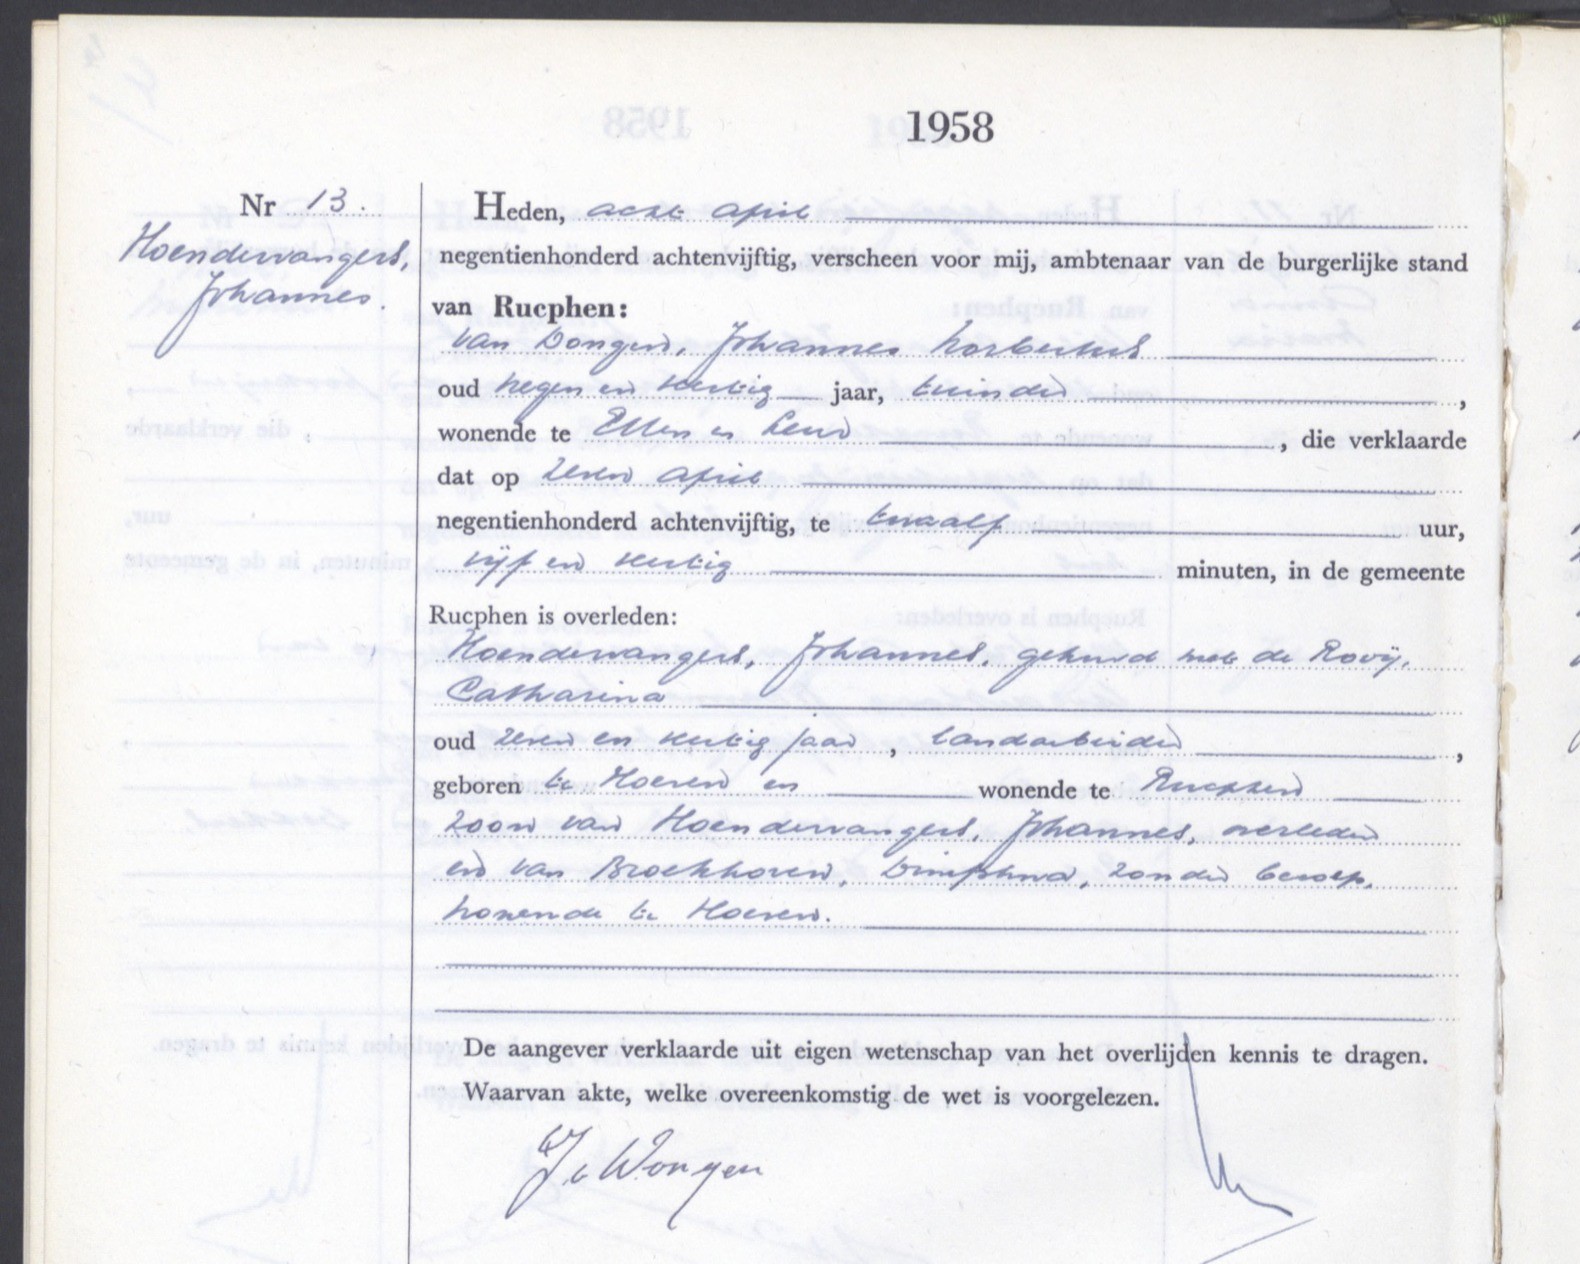 1958
Nr 13.
Hoendervangers,
Johannes.
Heden, acht april
negentienhonderd achtenvijftig, verscheen voor mij, ambtenaar van de burgerlijke stand
van Rucphen:
van Dongen, Johannes Norbertus
oud negen en dertig jaar, tuinder
wonende te Etten en Leur, die verklaarde
dat op zeven april
negentienhonderd achtenvijftig, te twaalf uur,
vijf en dertig minuten, in de gemeente
Rucphen is overleden:
Hoendervangers, Johannes, gehuwd met de Rooij,
Catharina
oud zeven en dertig jaar, landarbeider,
geboren te Hoeven en wonende te Rucphen
zoon van Hoendervangers, Johannes, overleden
en van Broekhoven, Dimphna, zonder beroep,
wonende te Hoeven.
De aangever verklaarde uit eigen wetenschap van het overlijden kennis te dragen.
Waarvan akte, welke overeenkomstig de wet is voorgelezen.